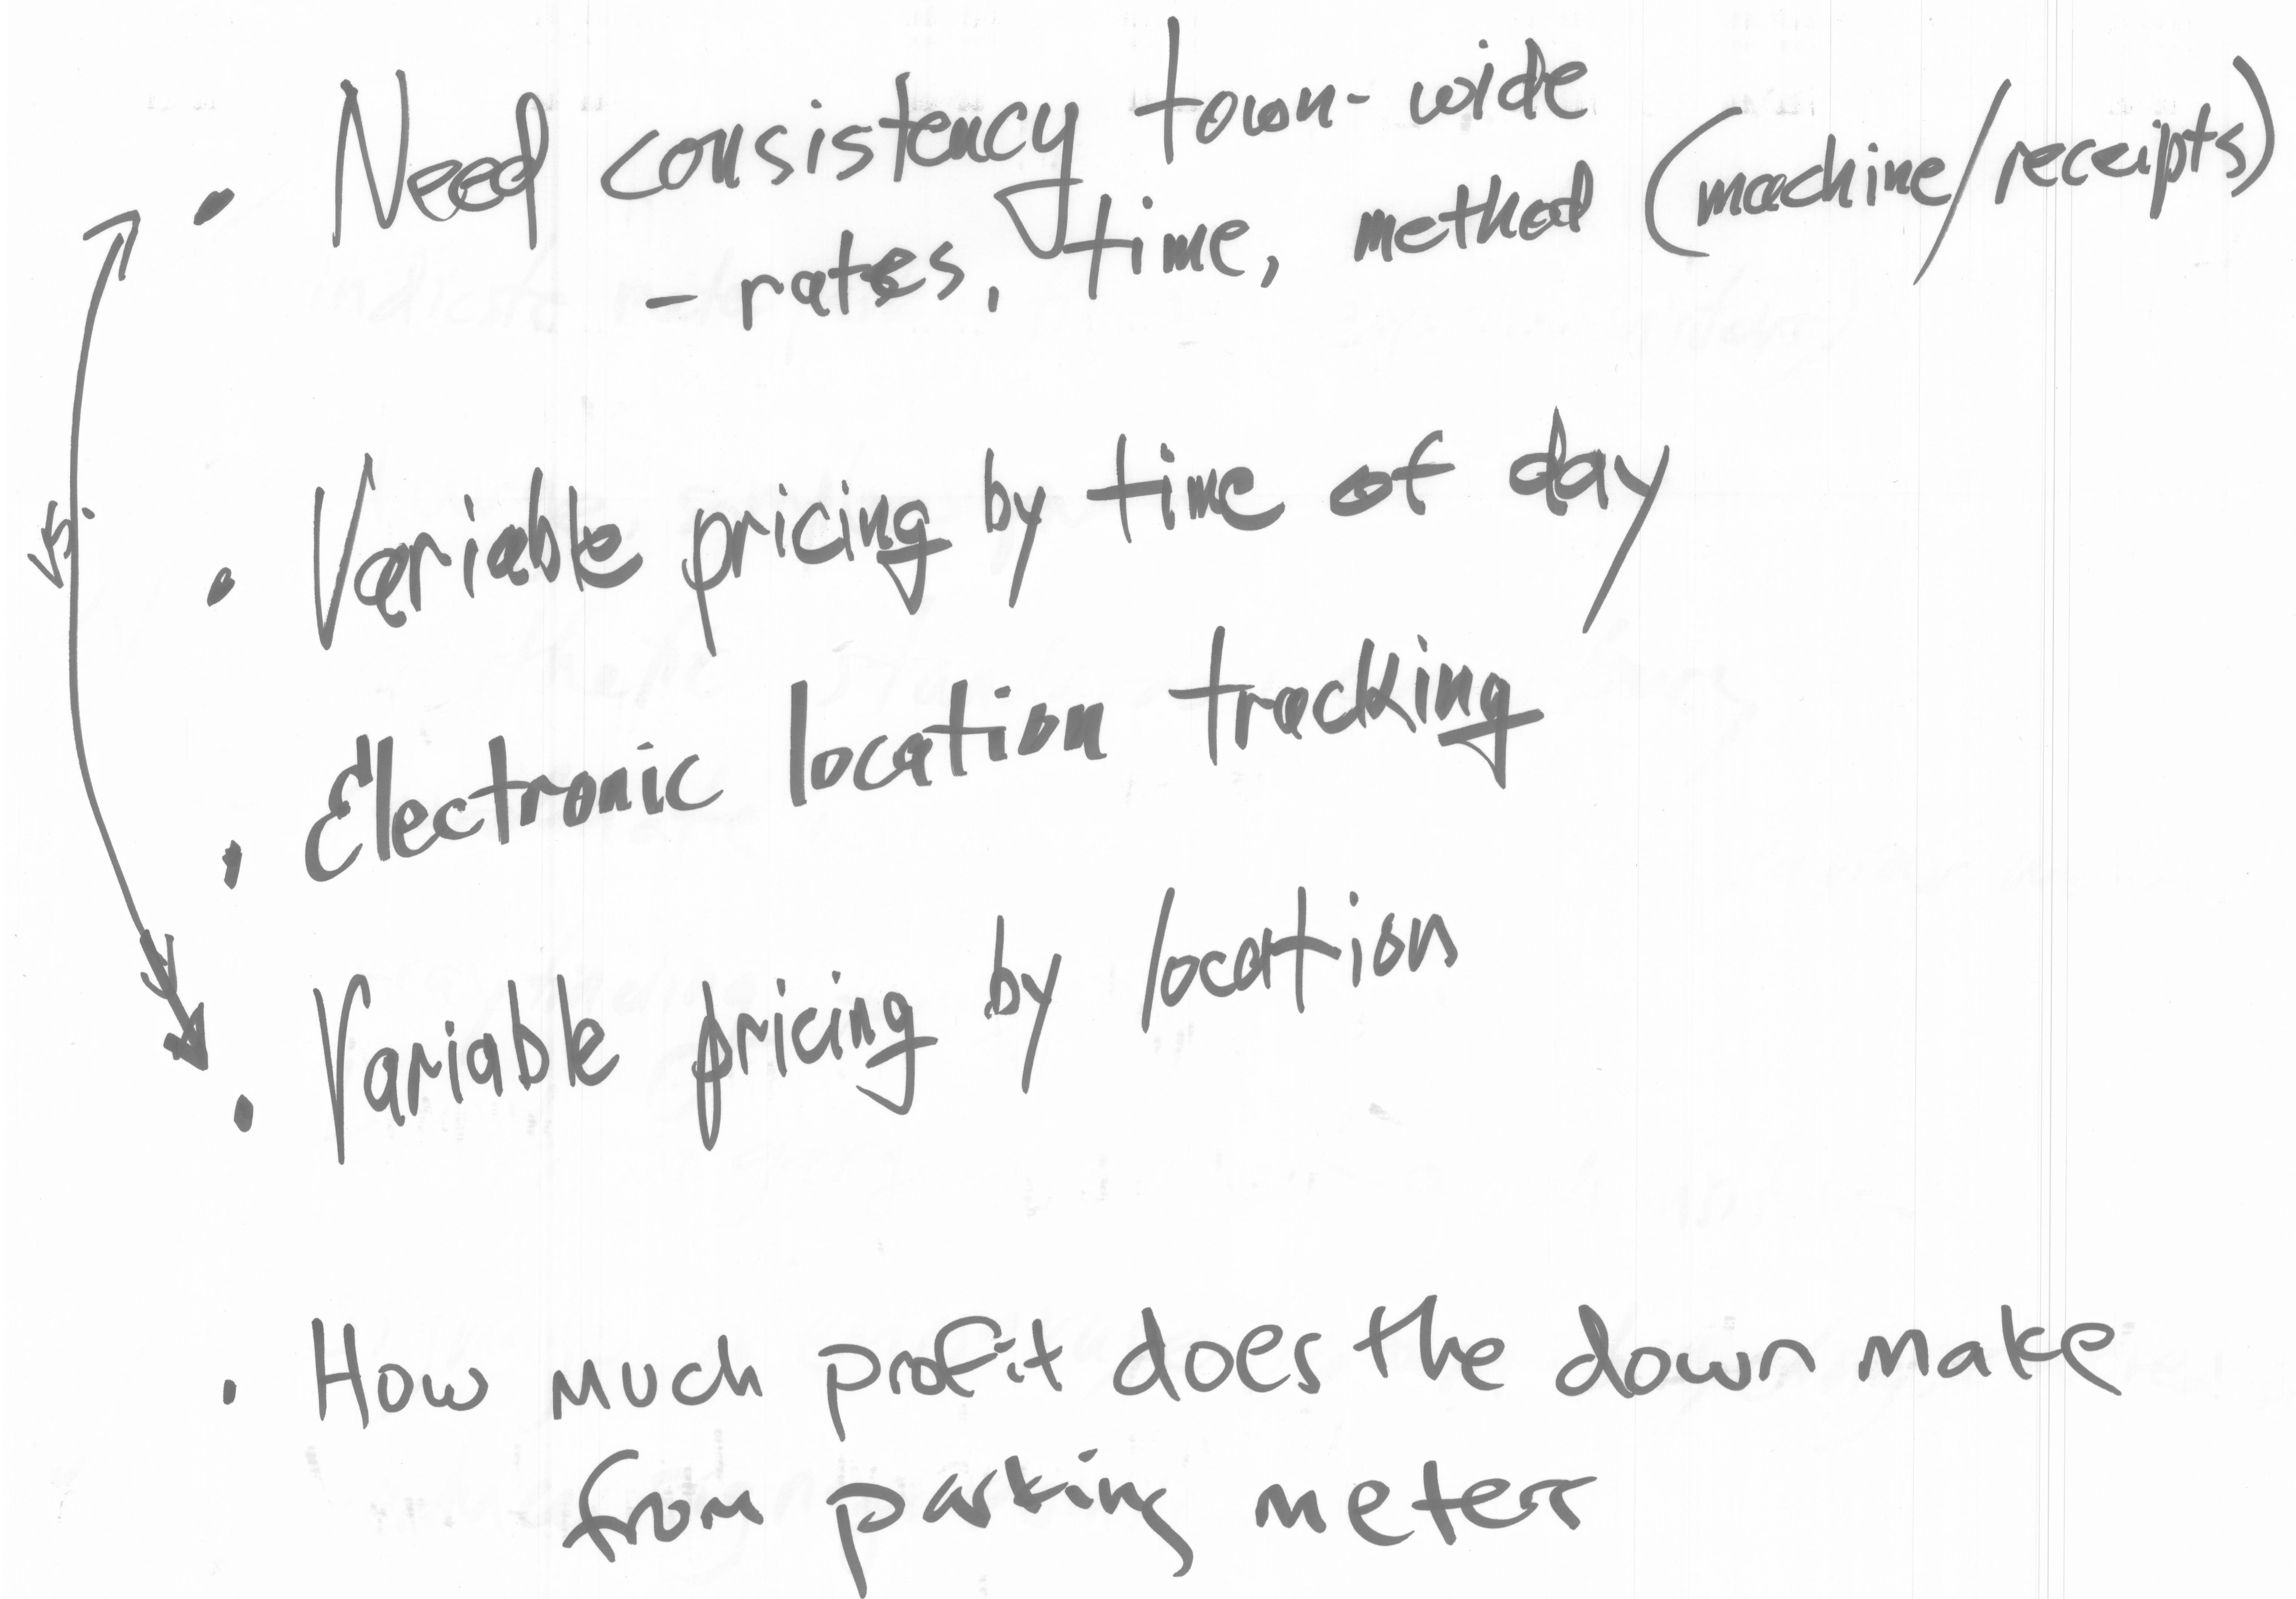 • Need consistency town-wide
- rates, time, method (machine/receipts)
• Variable pricing by time of day
• Electronic location tracking
• Variable pricing by location
• How much profit does the down make
from parking meters